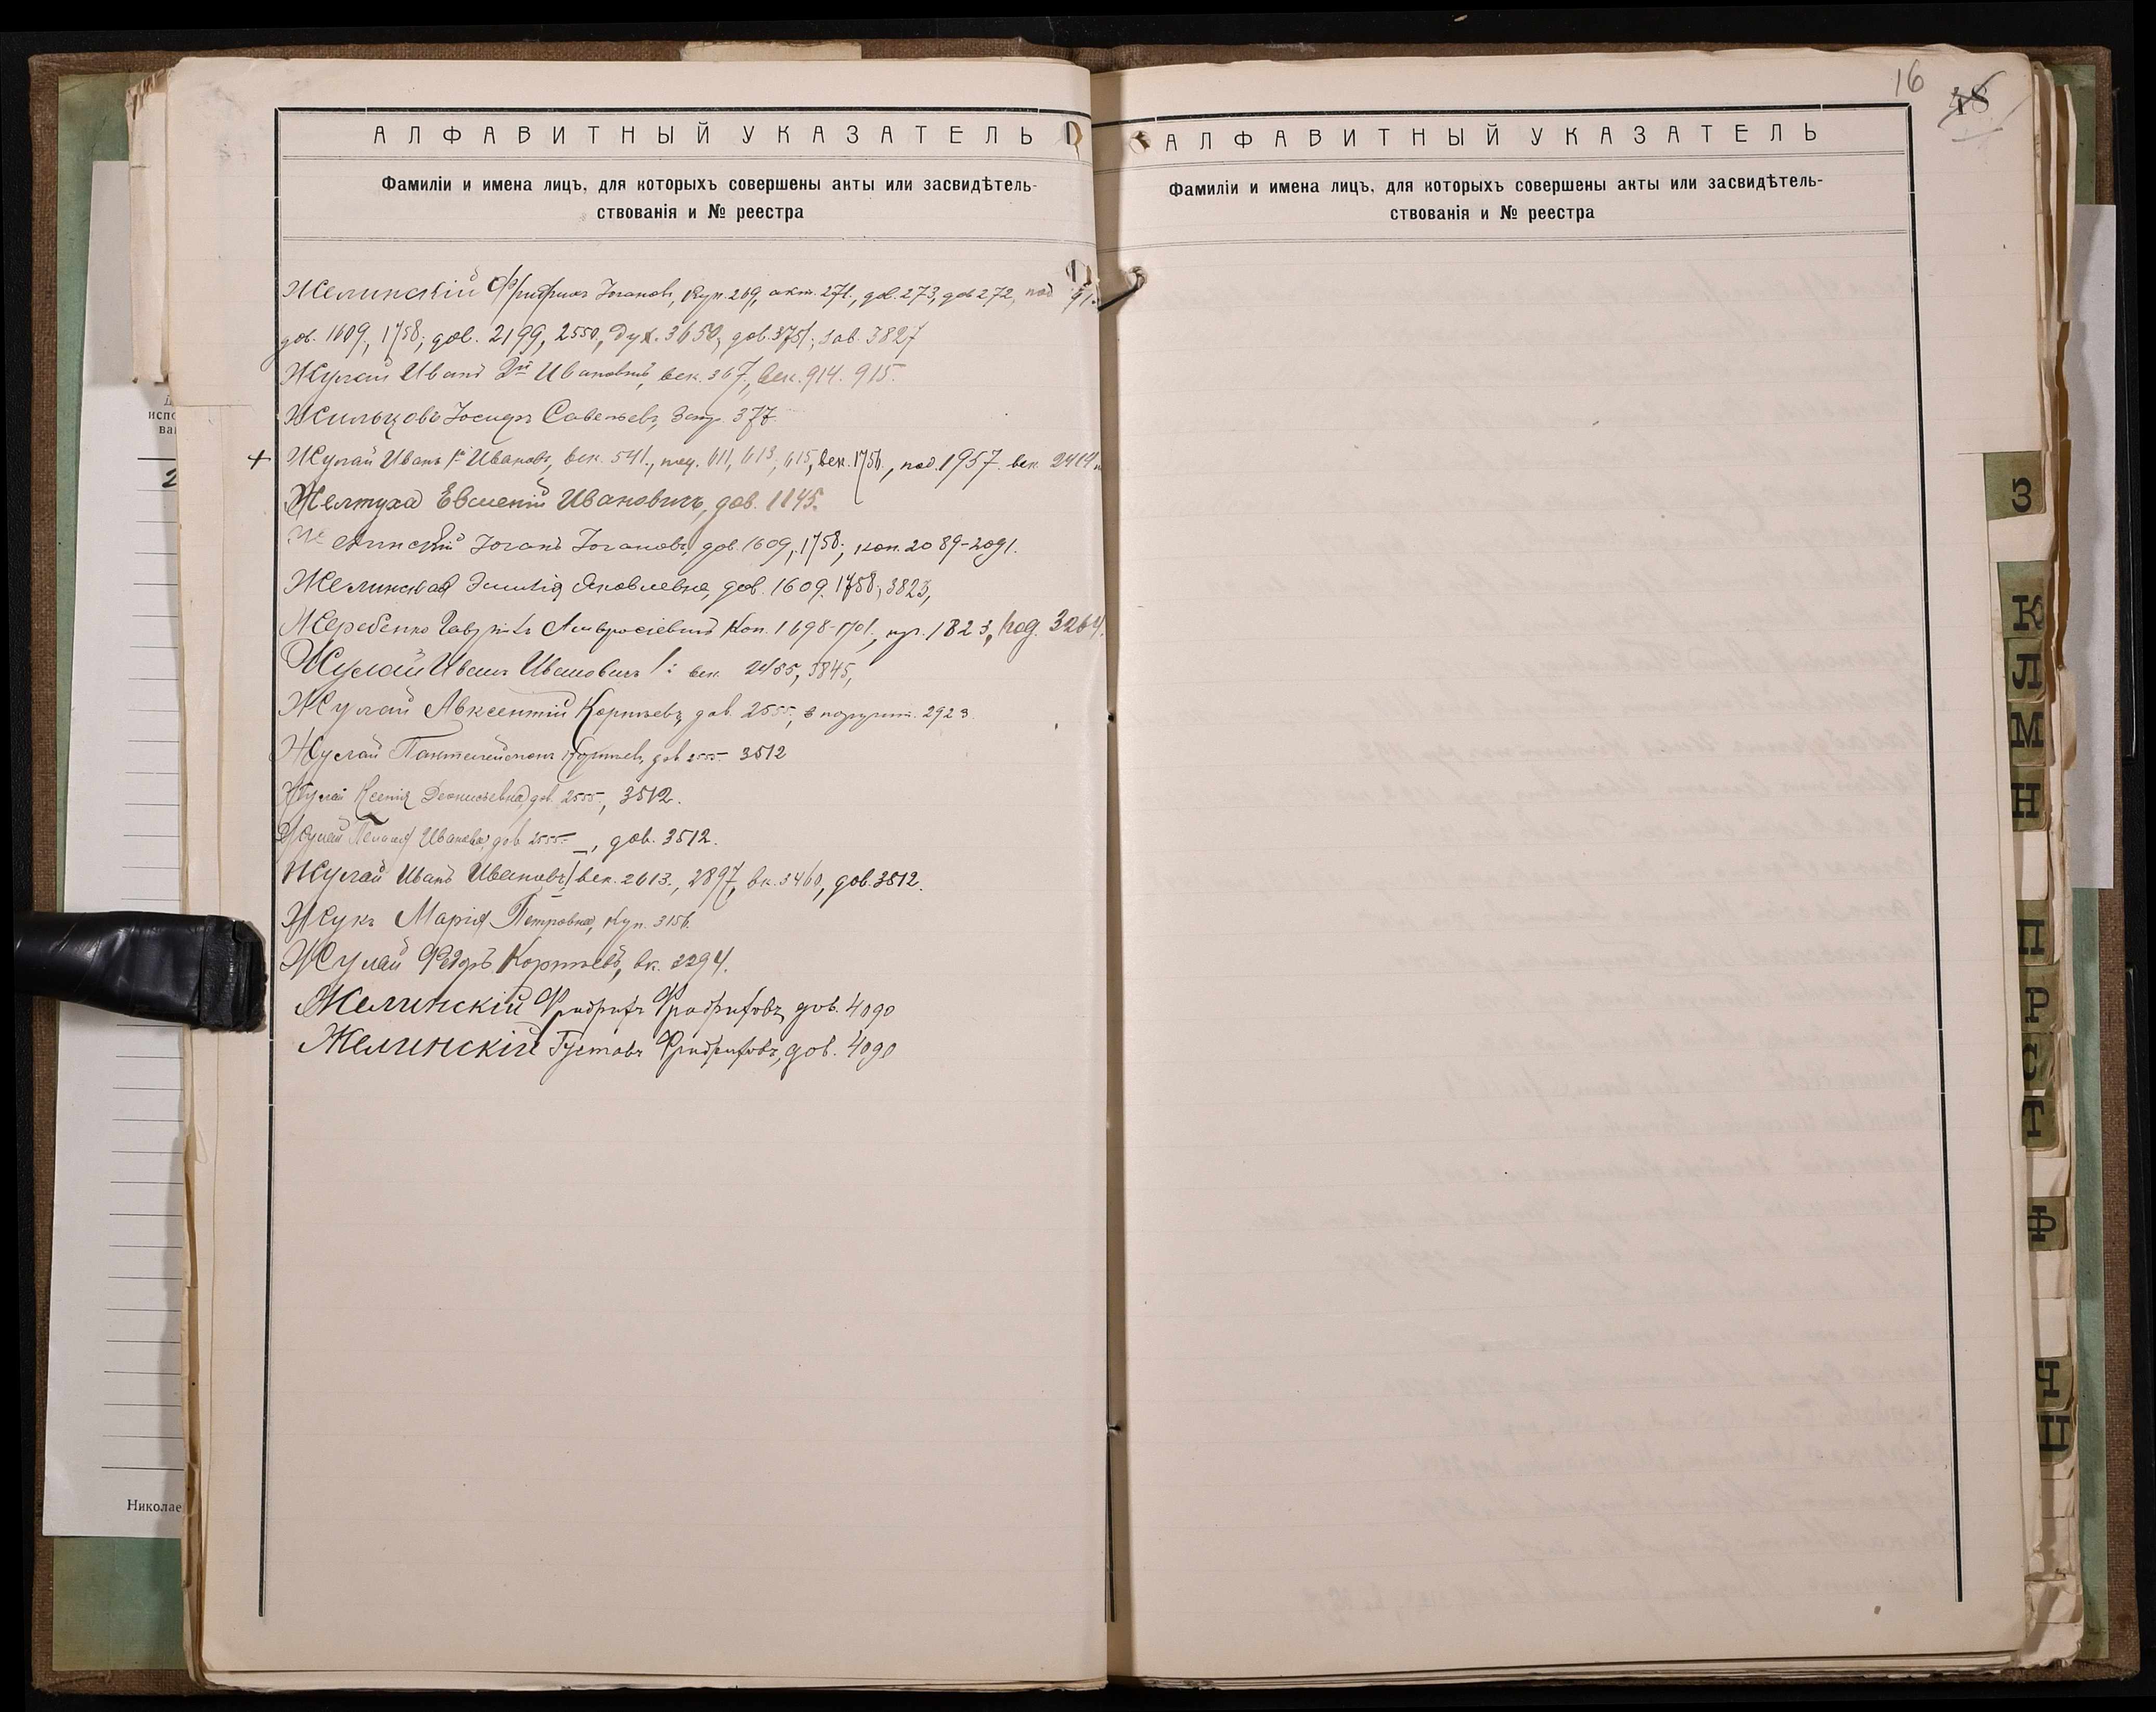 АЛФАВИТНЫЙ УКАЗАТЕЛЬ
Фамиліи и имена лицъ, для которыхъ совершены акты или засвидѣтель-
ствованія и № реестра
Желинскій Фридрихъ Іогановъ, куп. 269, акт. 271., дов. 273, дов 272, под 91
дов. 1609, 1758; дов. 2199, 2550, Дух. 3650, дов. 3751; зав. 3827
Жулай Иванъ 2й Ивановичъ, век. 367, век. 914. 915.
Жильцовъ Іосифъ Савельевъ, 377.
+ Жулай Иванъ 1й Ивановъ, век. 541., 611, 613, 615, век. 1756., под. 1957. век. 2414
Желтуха Евменій Ивановичъ, дов. 1145.
Желинскій Іоганъ Іогановъ, дов. 1609, 1758; коп. 2089-2091.
Желинская Эмилія Яковлевна, дов. 1609. 1758; 3823,
Жеребенко Гавріилъ Амвросіевичъ Коп. 1698-1701., 1823, Под. 3264.
Жулай Иванъ Ивановичъ 1: век. 2485, 3845,
Жулай Авксентій Корнѣевъ, дов. 2555, 2923
Жулай Пантелеймонъ Корнѣевъ, дов 2555 3512
Жулай Ксенія Деонисьевна, дов. 2555, 3512.
Жулай Пелагея Иванова, дов 2555 –, дов. 3512.
Жулай Иванъ Ивановъ 1 век. 2613., 2897, вк. 3460, дов. 3512.
Жукъ Марія Петровна, куп. 3156.
Жулай Федоръ Корнѣевъ, вк. 2294.
Желинскій Фридрихъ Фридриховъ, дов. 4090
Желинскій Густавъ Фридриховъ, дов. 4090
16
48
АЛФАВИТНЫЙ УКАЗАТЕЛЬ
Фамиліи и имена лицъ, для которыхъ совершены акты или засвидѣтель-
ствованія и № реестра
З
К
Л
М
Н
П
Р
С
Т
Ф
Ч
испо
ва
2
Николае